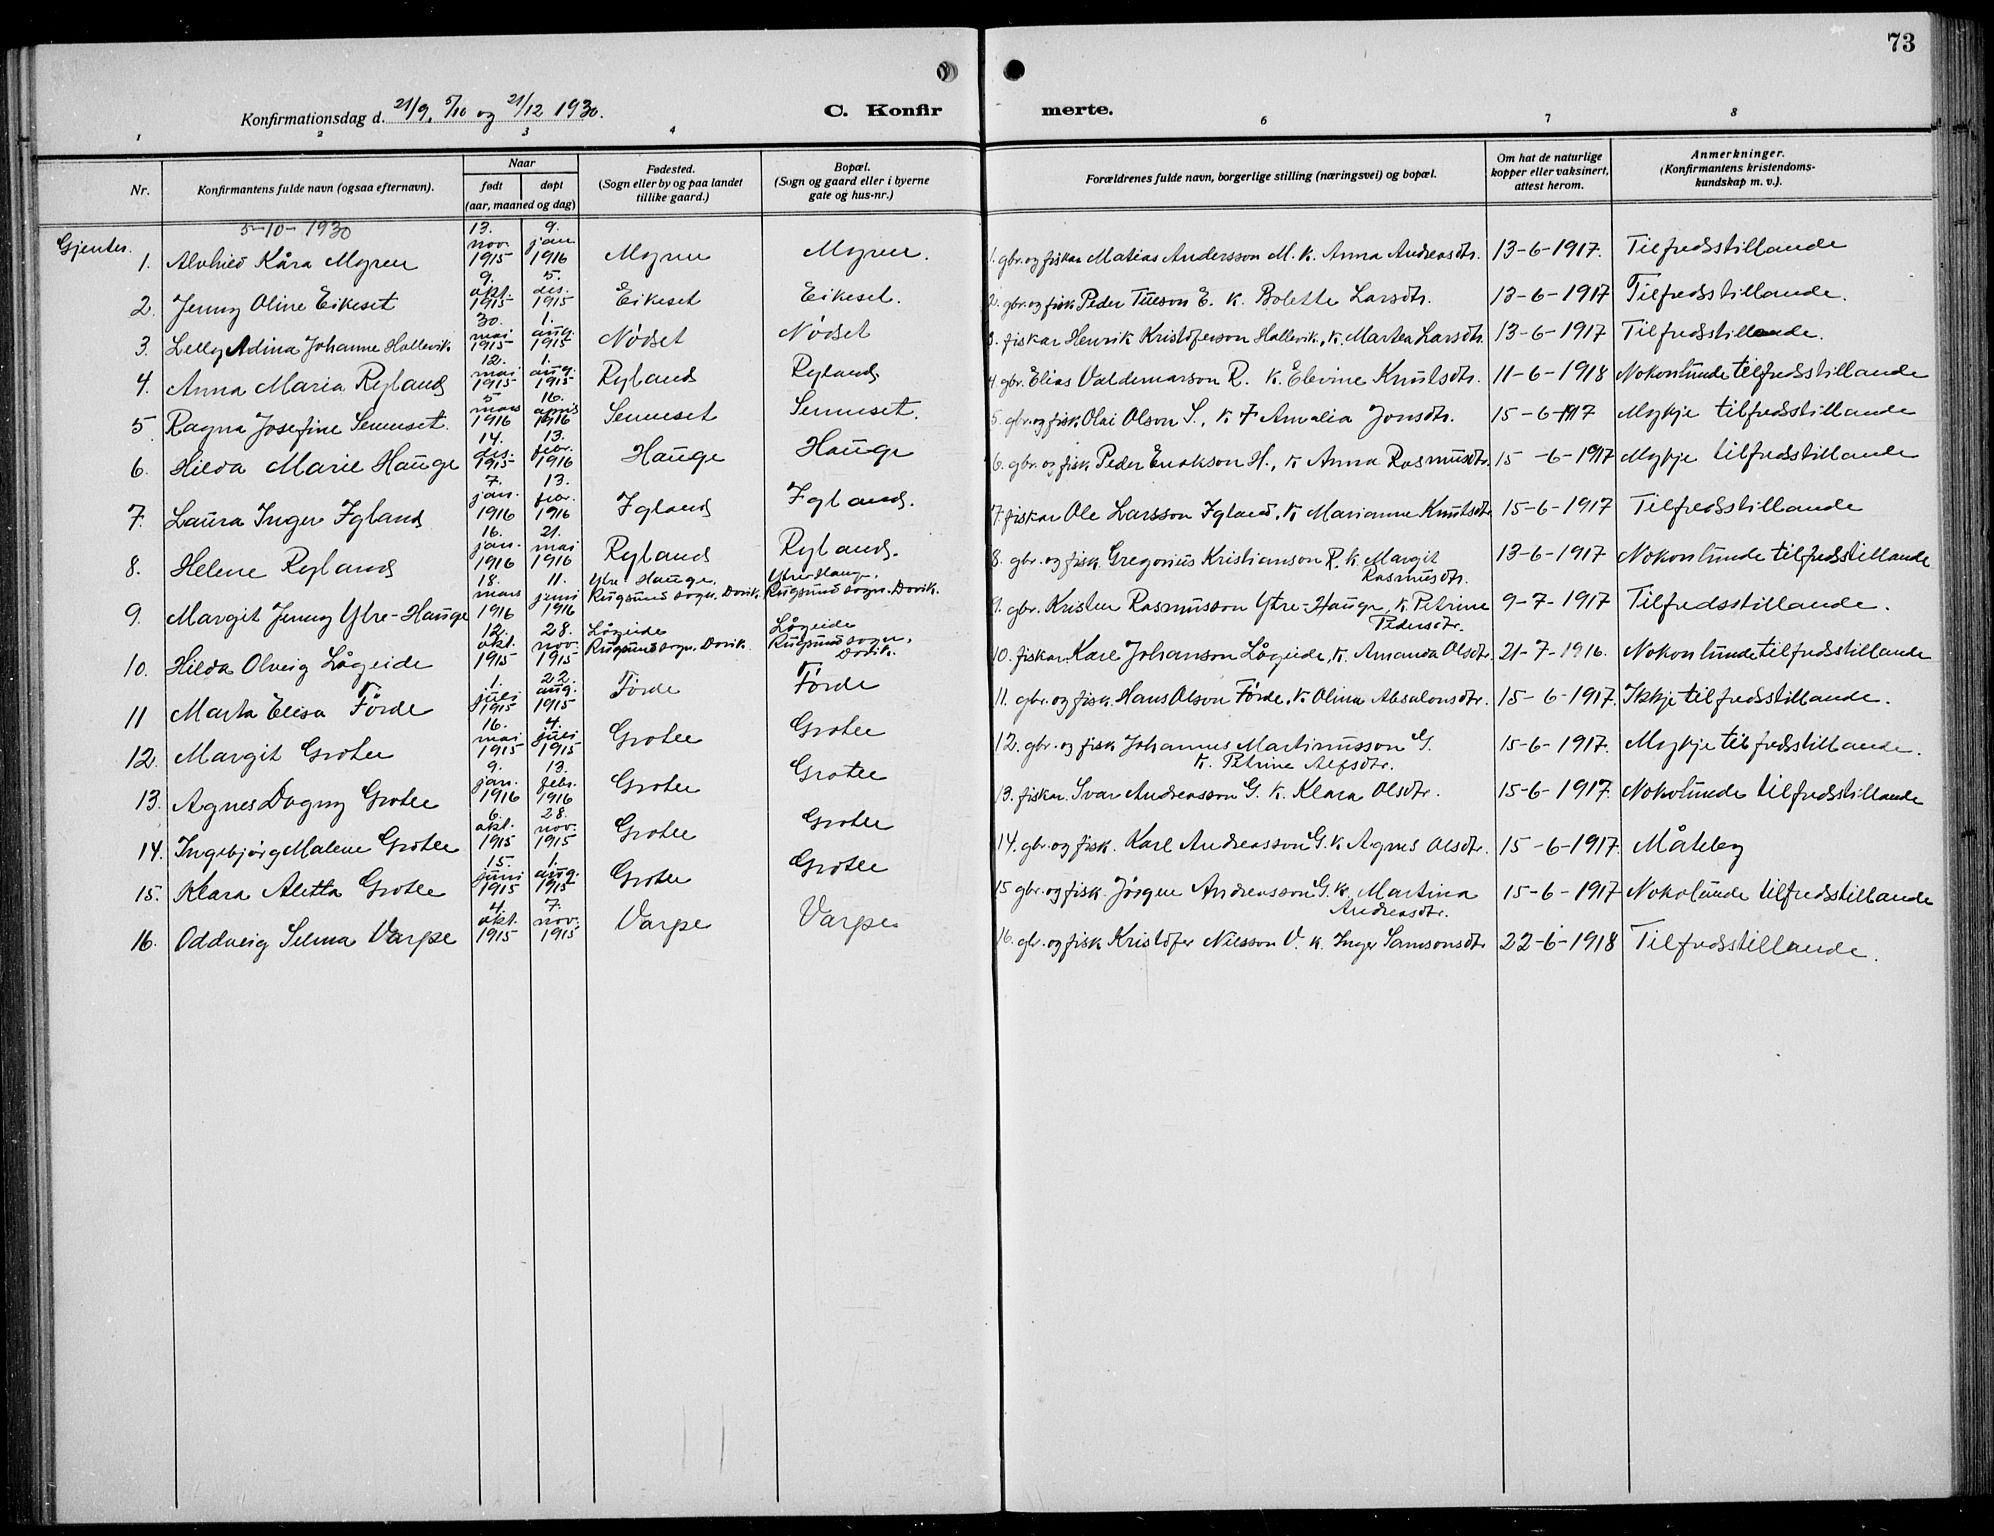 73
Konfirmationsdag d. 21/9, 5/10 og 21/12 1930.
C. Konfir
merte.
1 2 3 4 6 7 8
Nr.
Konfirmantens fulde navn (ogsaa efternavn).
Naar
født
døpt
(aar, maaned og dag)
Fødested.
(Sogn eller by og paa landet
tillike gaard.)
Bopæl.
(Sogn og gaard eller i byerne
gate og hus-nr.)
Forældrenes fulde navn, borgerlige stilling (næringsvei) og bopæl.
Om hat de naturlige
kopper eller vaksinert,
attest herom.
Anmerkninger.
(Konfirmantens kristendoms-
kundskap m. v.).
Gjenter.
5-10-1930
1. Alvhild Kåra Myren 13. nov. 1915 9. jan. 1916 Myren Myren. 1. gbr. og fiskar Matias Andersson M. K. Anna Andreasdtr. 13-6-1917. Tilfredsstillande
2. Jenny Oline Eikeset 9. okt. 1915 5. des. 1915 Eikeset Eikeset. 2. gbr. og fisk Peder E. K. Bolette Larsdtr. 13-6-1917 Tilfredsstillande.
3. Lelly Adina Johanne Hallevik 30. mai 1915 1. aug. 1915 Nødset Nødset 3. fiskar Henrik Kristoferson Hallevik, K. Martea Larsdtr. 13-6-1917 Tilfredsstillande.
4. Anna Maria Rylands 12. mai 1915 1. aug. 1915 Rylands Rylands 4 gbr. Elias Valdemarson R. K. Elevine Knutsdtr. 11-6-1918 Nokonlunde tilfredsstillande
5 Ragna Josefine Senneset. 5 mars 1916 16. april 1916 Senneset Senneset. 5. gbr. og fisk Olai Olson S., K. Amalia Jonsdtr. 15-6-1917 Mykje tilfredsstillande
6. Hilda Marie Hauge 14. des. 1915 13. febr. 1916 Hauge Hauge 6. gbr. og fisk Peder Enokson H., K Anna Rasmusdtr. 15-6-1917 Mykje tilfredsstillande
7. Laura Inger Igland 7. jan. 1916 13. febr. 1916 Igland Igland. 7. fiskar Ole Larsson Igland, K Marianne Knutsdtr. 15-6-1917 Tilfredsstillande
8. Helene Rylands 16. jan. 1916 21. mai 1916 Rylands Rylands. 8. gbr. og fisk. Gregorius Kristianson R. K. Margit
Rasmusdtr. 13-6-1917 Nokonlunde tilfredsstillande
9. Margit Jenny Ytre-Hauge 18. mars 1916 11. juni 1916 Ytre Hauge, Rugsund sogn, Davik. Ytre Hauge, Rugsund sogn. Davik. 9. gbr. Kristen Rasmusson Ytre-Hauge, K. Petrine
Pedersdtr. 9-7-1917 Tilfredsstillande.
10. Hilda Olveig Lågeide 12. okt. 1915 28. nov. 1915 Lågeide Rugsund sogn, Davik. Lågeide Rugsund sogn, Davik. 10. fiskar Karl Johanson Lågeide, K. Amanda Olsdtr. 21-7-1916. Nokonlunde tilfredsstillande
11 Marta Elisa Førde 1. juli 1915 22. aug. 1915 Førde Førde 11. gbr. og fisk. Hans Olson Førde, K Olina Absalonsdtr. 15-6-1917. Ikkje tilfredsstillande.
12. Margit Grotle 16. mai 1915 4. juli 1915 Grotle Grotle 12. gbr. og fisk Johannes Martinusson G.
K. Petrine Alfsdtr. 15-6-1917. Mykje tilfredsstillande.
13. Agnes Dagny Grotle 9. jan. 1916 13. febr. 1916 Grotle Grotle 13. fiskar. Ivar Andreasson G. K. Klara Olsdtr. 15-6-1917. Nokolunde tilfredsstillande
14. Ingebjørg Malene Grotle 6. okt. 1915 28. nov. 1915 Grotle Grotle 14. gbr. og fisk. Karl Andreasson G. K Agnes Olsdtr. 15-6-1917. Måteleg
15. Klara Aletta Grotle 15. juni 1915 1. aug. 1915 Grotle Grotle 15 gbr. og fisk. Jørgen Andreasson G. K. Martina
Andreasdtr. 15-6-1917 Nokolunde tilfredsstillande
16. Oddveig Selma Varpe 4. okt. 1915 7. nov. 1915 Varpe Varpe 16. gbr. og fisk Kristofer Nilsson V. K. Inger Samsonsdtr 22-6-1918 Tilfredsstillande.